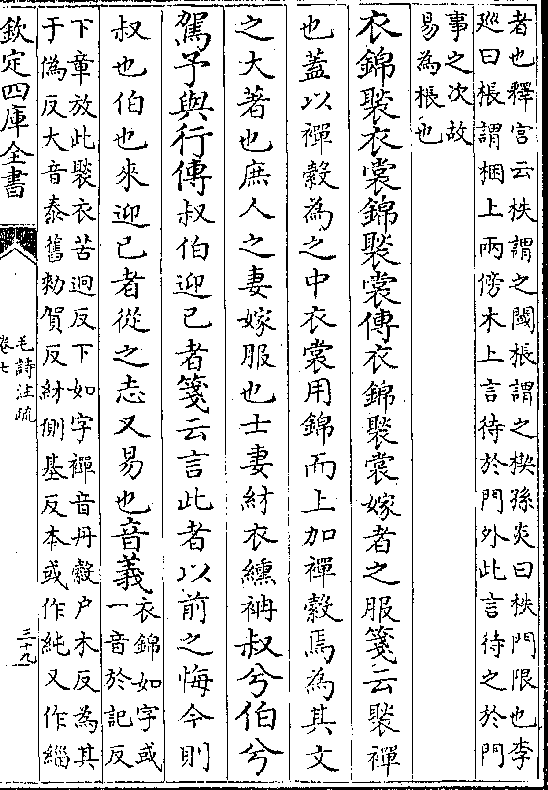 者也釋宮云柣謂之閾棖謂之楔孫炎曰柣門限也李
廵曰棖謂梱上兩傍木上言待於門外此言待之於門
事之次故
易為棖也
衣錦褧衣裳錦褧裳傳衣錦褧裳嫁者之服箋云褧襌
也蓋以襌縠為之中衣裳用錦而上加襌縠焉為其文
之大著也庶人之妻嫁服也士妻紂衣纁袡叔兮伯兮
駕予與行傳叔伯迎已者箋云言此者以前之悔今則
叔也伯也來迎已者從之志又易也音義
衣錦如字或
一音於記反
下章放此褧衣苦迥反下如字襌音丹縠戶木反為其
于偽反大音泰舊勑賀反紂側基反本或作純又作緇
欽定四庫全書
毛詩注疏
卷七
三十九